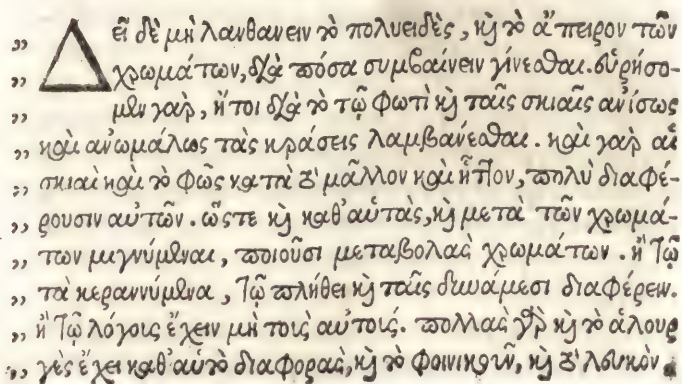 „ Δεῖ δὲ μὴ λανθανειν τὸ πολυειδὲς, καὶ τὸ ἄπειρον τῶν
„ χρωμάτων, διὰ πόσα συμβαίνειν γίνεσθαι. εὑρήσο-
„ μεν γαρ, ἤτοι διὰ τὸ τῷ φωτὶ καὶ ταῖς σκιαῖς ανίσως
„ καὶ ανωμάλως τὰς κράσεις λαμβανέσθαι. καὶ γαρ αἱ
„ σκιαὶ καὶ τὸ φῶς κατὰ τὸ μᾶλλον καὶ ἧττον, πολὺ διαφέ-
„ ρουσιν αὐτῶν. ὥστε καὶ καθ᾽ αὑτὰς, καὶ μετὰ τῶν χρωμά-
„ των μιγνύμεναι, ποιοῦσι μεταβολὰς χρωμάτων. ἢ τῷ
„ τὰ κεραννύμενα, τῷ πλήθει καὶ ταῖς δυνάμεσι διαφέρειν.
„ ἢ τῷ λόγοις ἔχειν μὴ τοῖς αὐτοῖς. πολλὰς γὰρ καὶ τὸ ἁλουρ
„ γὲς ἔχει καθ᾽ αὑτὸ διαφορὰς, καὶ τὸ φοινικοῦν, καὶ τὸ λευκὸν.